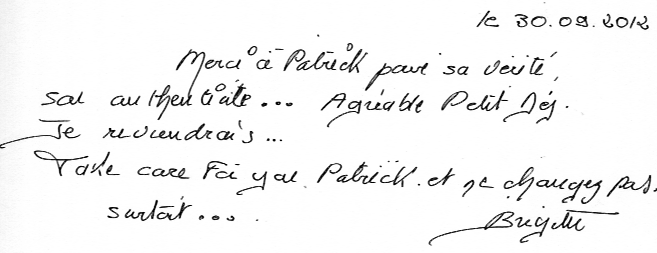 le 30.09.2012
Merci à Patrick pour sa vérité,
son authenticité... Agréable Petit Déj.
Je reviendrais...
Take care Patrick et ne changez pas,
surtout....
Brigitte